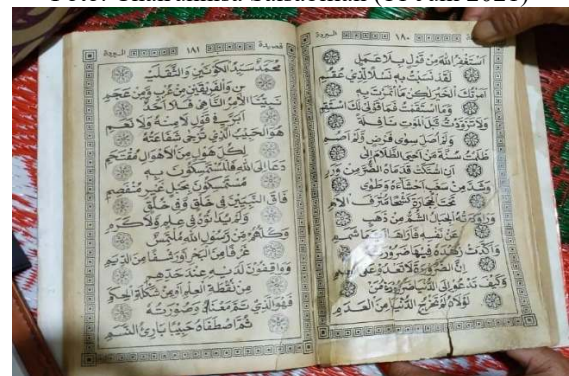 ١٨٠ البردة
اَسْتَغْفِرُ اللهَ مِنْ قَوْلٍ بِلَا عَمَلٍ
لَقَدْ نَسَبْتُ بِهِ نَسْلًا لِذِي عُقُمِ
اَمَرْتُكَ الْخَيْرَ لٰكِنْ مَا ائْتَمَرْتُ بِهِ
وَمَا اسْتَقَمْتُ فَمَا قَوْلِي لَكَ اسْتَقِمِ
وَلَا تَزَوَّدْتُ قَبْلَ الْمَوْتِ نَافِلَةً
وَلَمْ اُصَلِّ سِوٰى فَرْضٍ وَلَمْ اَصُمِ
ظَلَمْتُ سُنَّةَ مَنْ اَحْيَى الظَّلَامَ اِلٰى
اَنِ اشْتَكَتْ قَدَمَاهُ الضُّرَّ مِنْ وَرَمِ
وَشَدَّ مِنْ سَغَبٍ اَحْشَاءَهُ وَطَوٰى
تَحْتَ الْحِجَارَةِ كَشْحًا مُتْرَفَ الْاَدَمِ
وَرَاوَدَتْهُ الْجِبَالُ الشُّمُّ مِنْ ذَهَبٍ
عَنْ نَفْسِهِ فَاَرَاهَا اَيَّمَا شَمَمِ
وَاَكَّدَتْ زُهْدَهُ فِيْهَا ضَرُوْرَتُهُ
اِنَّ الضَّرُوْرَةَ لَا تَعْدُوْ عَلَى الْعِصَمِ
وَكَيْفَ تَدْعُوْ اِلَى الدُّنْيَا ضَرُوْرَةُ مَنْ
لَوْلَاهُ لَمْ تُخْرَجِ الدُّنْيَا مِنَ الْعَدَمِ
قصيدة ١٨١ البردة
مُحَمَّدٌ سَيِّدُ الْكَوْنَيْنِ وَالثَّقَلَيْـ
ـنِ وَالْفَرِيْقَيْنِ مِنْ عُرْبٍ وَمِنْ عَجَمِ
نَبِيُّنَا الْاٰمِرُ النَّاهِيْ فَلَا اَحَدٌ
اَبَرَّ فِيْ قَوْلِ لَا مِنْهُ وَلَا نَعَمِ
هُوَ الْحَبِيْبُ الَّذِيْ تُرْجٰى شَفَاعَتُهُ
لِكُلِّ هَوْلٍ مِنَ الْاَهْوَالِ مُقْتَحَمِ
دَعَا اِلَى اللهِ فَالْمُسْتَمْسِكُوْنَ بِهِ
مُسْتَمْسِكُوْنَ بِحَبْلٍ غَيْرِ مُنْفَصِمِ
فَاقَ النَّبِيِّيْنَ فِيْ خَلْقٍ وَفِيْ خُلُقٍ
وَلَمْ يُدَانُوْهُ فِيْ عِلْمٍ وَلَا كَرَمِ
وَكُلُّهُمْ مِنْ رَسُوْلِ اللهِ مُلْتَمِسٌ
غَرْفًا مِنَ الْبَحْرِ اَوْ رَشْفًا مِنَ الدِّيَمِ
وَوَاقِفُوْنَ لَدَيْهِ عِنْدَ حَدِّهِمِ
مِنْ نُقْطَةِ الْعِلْمِ اَوْ مِنْ شَكْلَةِ الْحِكَمِ
فَهْوَ الَّذِيْ تَمَّ مَعْنَاهُ وَصُوْرَتُهُ
ثُمَّ اصْطَفَاهُ حَبِيْبًا بَارِئُ النَّسَمِ